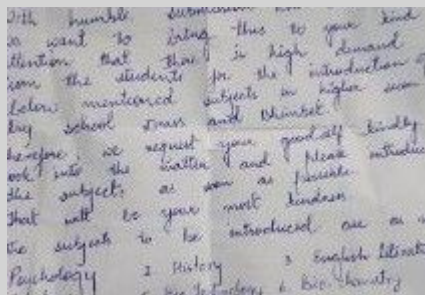 With humble submission
we want to bring this to your kind
attention that there is high demand
from the students for the introduction of
below mentioned subjects in higher
school Drass and Bhimbet.
therefore, we request your goodself kindly
look into the matter and please introduce
the subjects as soon as possible
that will be your most kindness
the subjects to be introduced are as
Psychology 2 History 3 English Literat
5 Bio Technology 6. Bio-